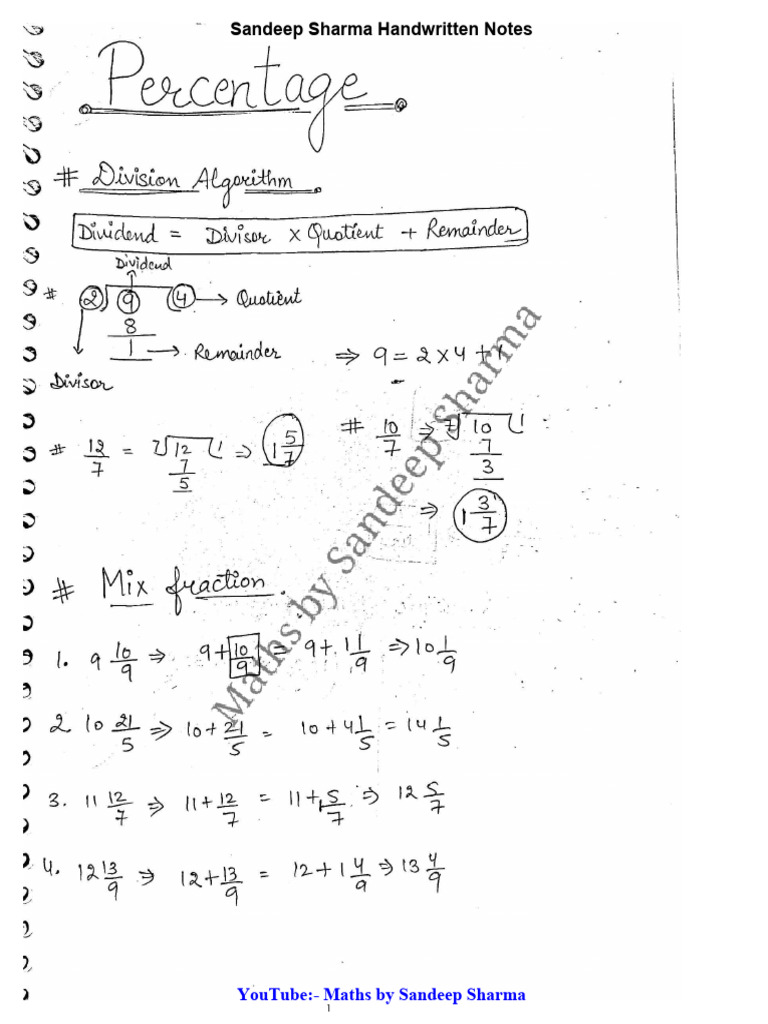 Sandeep Sharma Handwritten Notes
Percentage
# Division Algorithm
Dividend = Divisor × Quotient + Remainder
Dividend
# 2 9 4 → Quotient
8
1 → Remainder ⇒ 9 = 2 × 4 + 1
Divisor
# 12/7 = 7 12 1 ⇒ 1 5/7
7
5
# 10/7 ⇒ 7 10 1
7
3
⇒ 1 3/7
# Mix fraction.
1. 9 10/9 ⇒ 9 + 10/9 = 9 + 1 1/9 ⇒ 10 1/9
2. 10 21/5 ⇒ 10 + 21/5 = 10 + 4 1/5 = 14 1/5
3. 11 12/7 ⇒ 11 + 12/7 = 11 + 1 5/7 ⇒ 12 5/7
4. 12 13/9 ⇒ 12 + 13/9 = 12 + 1 4/9 ⇒ 13 4/9
Maths by Sandeep Sharma
YouTube:- Maths by Sandeep Sharma
1